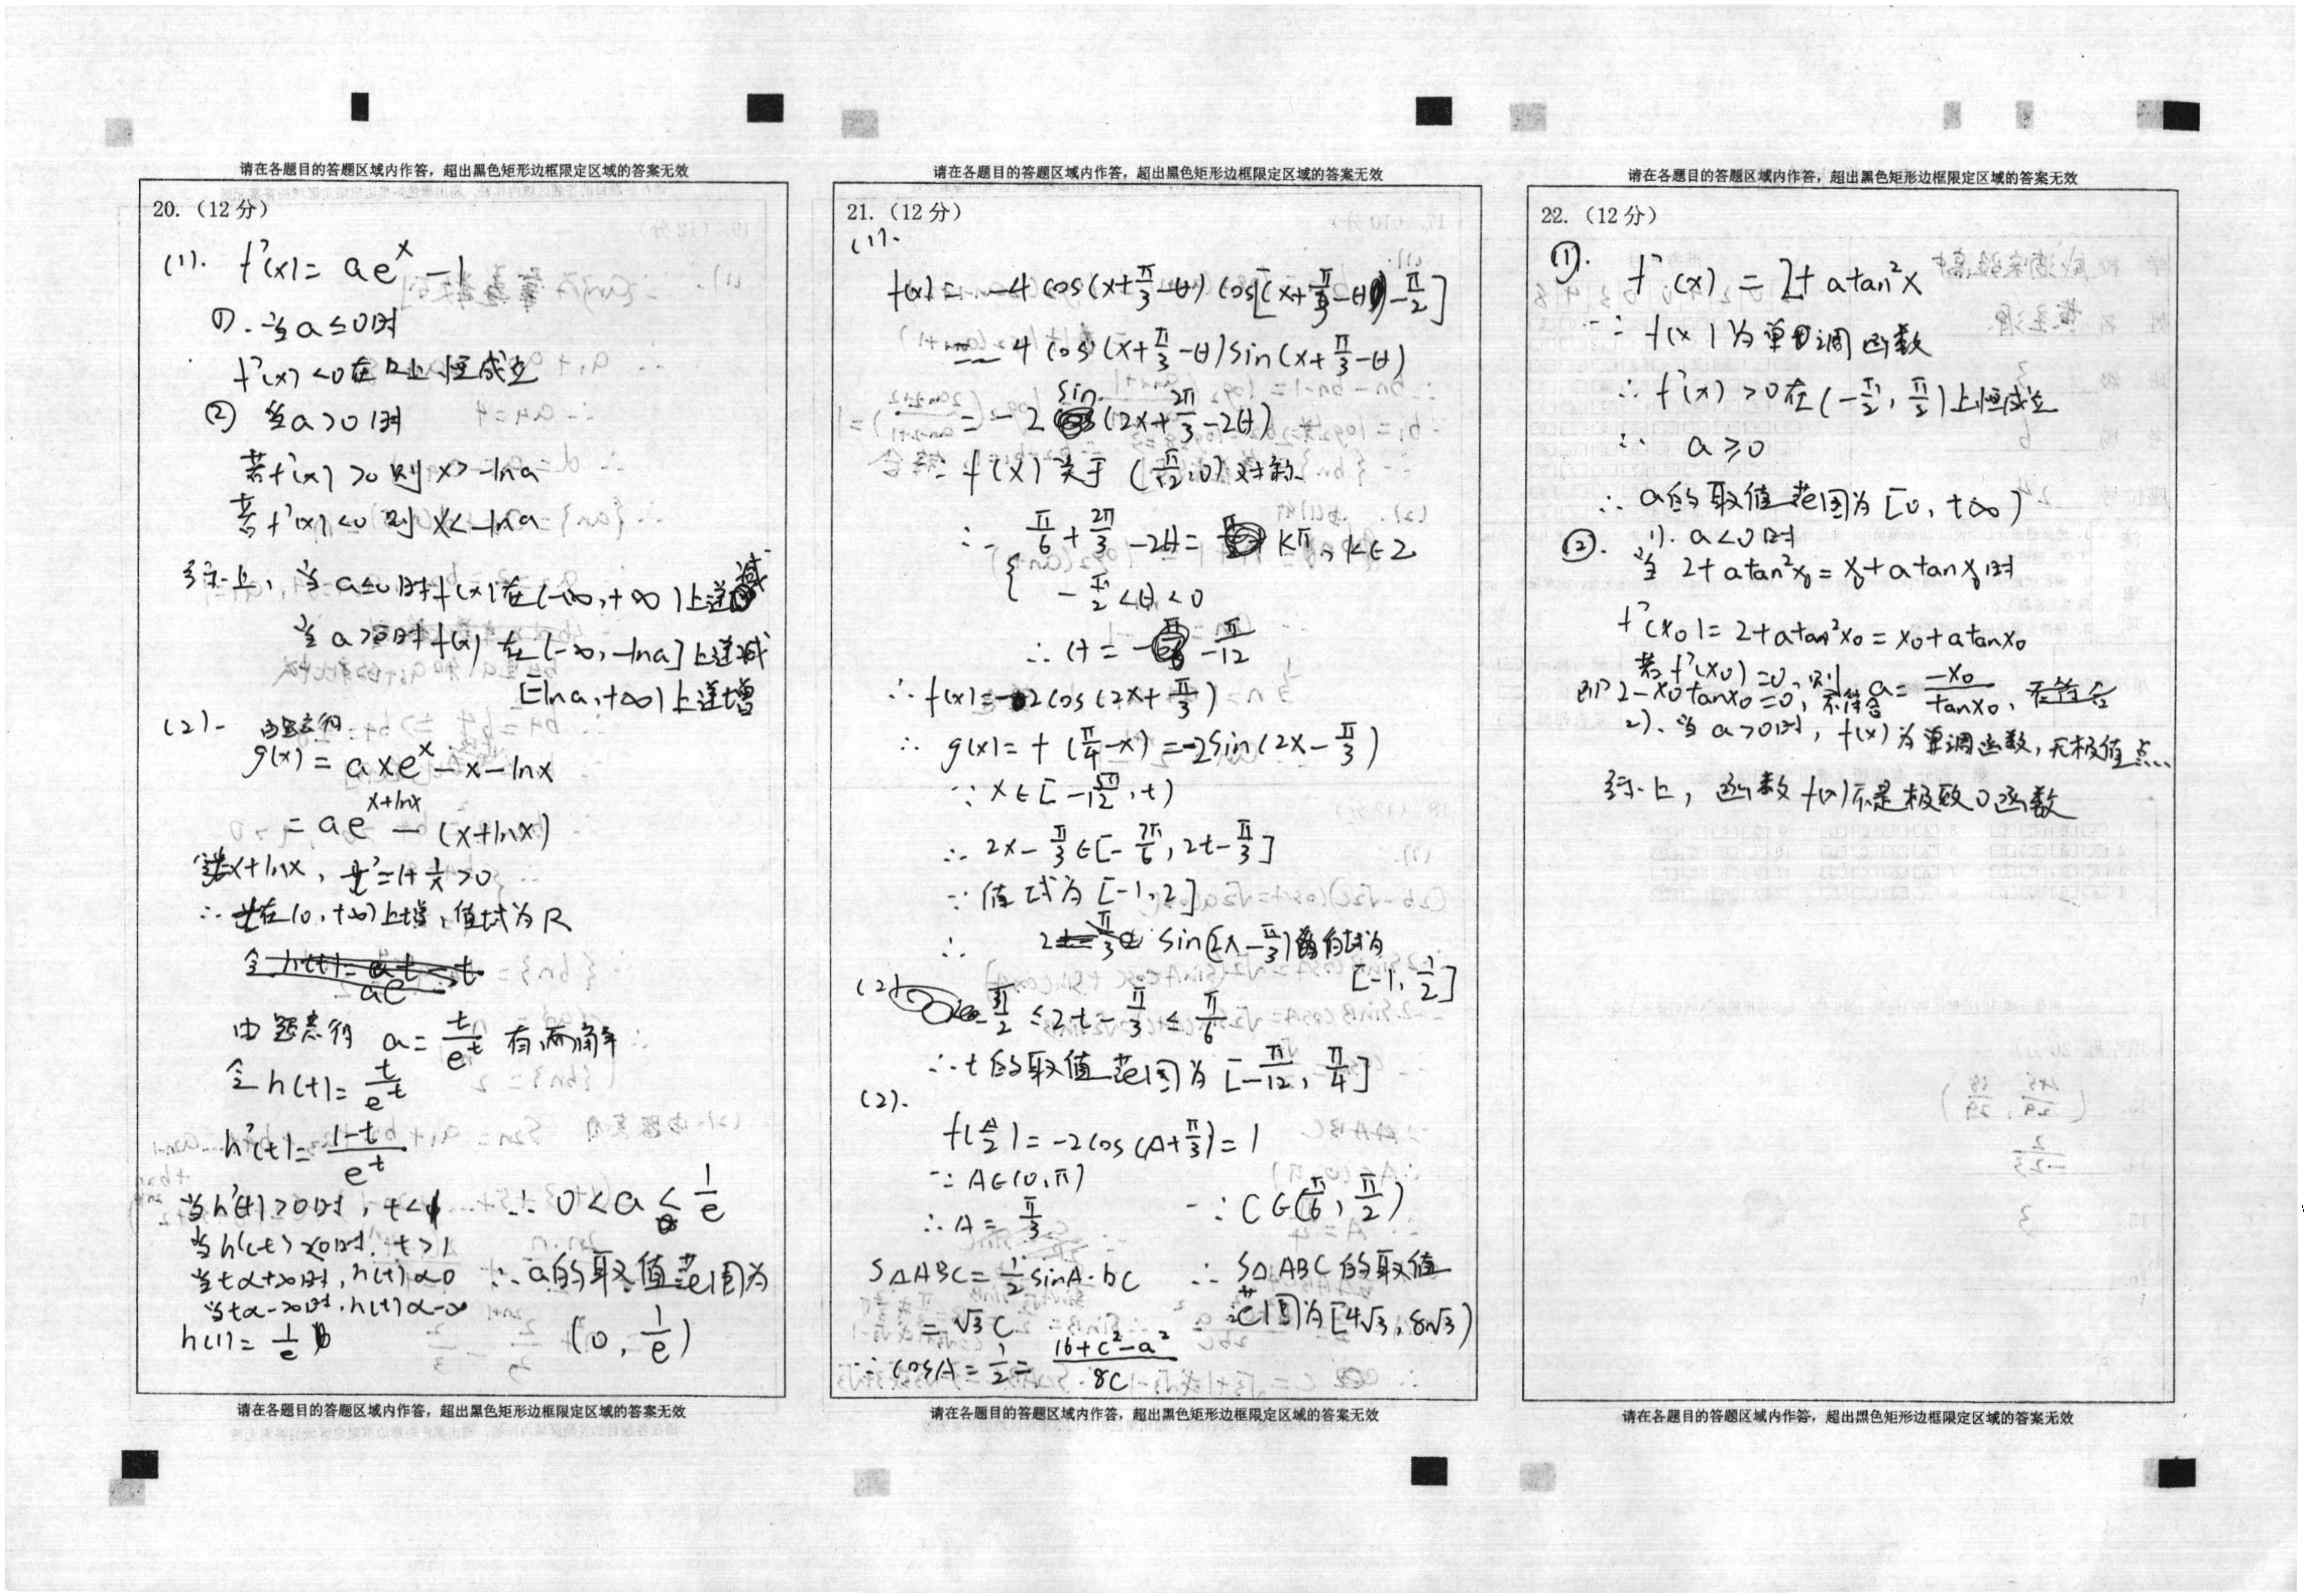 请在各题目的答题区域内作答，超出黑色矩形边框限定区域的答案无效
20.（12分）
(1). f'(x)= ae^x -1
①. 当a≤0时
f'(x)<0在R上恒成立
② 当a>0时
若f'(x)>0则x>-lna
若f'(x)<0则x<-lna
综上，当a≤0时f(x)在(-∞,+∞)上递减
当a>0时f(x)在(-∞,-lna]上递减
[-lna,+∞)上递增
(2). 由题意得
g(x)= axe^x -x-lnx
= ae^{x+lnx} -(x+lnx)
t=x+lnx, t'=1+1/x>0
∴ t在(0,+∞)上增，值域为R
由题意得 a= t/e^t 有两解
令h(t)= t/e^t
h'(t)= (1-t)/e^t
当h'(t)>0时，t<1
当h'(t)<0时，t>1
当t∝+∞时，h(t)∝0
当t∝-∞时，h(t)∝-∞
h(1)= 1/e
∴ 0<a≤ 1/e
∴ a的取值范围为
(0, 1/e)
请在各题目的答题区域内作答，超出黑色矩形边框限定区域的答案无效
请在各题目的答题区域内作答，超出黑色矩形边框限定区域的答案无效
21.（12分）
(1).
f(x)= -4cos(x+π/3-θ)cos[(x+π/3-θ)-π/2]
= -4cos(x+π/3-θ)sin(x+π/3-θ)
= -2sin(2x+2π/3-2θ)
∵ f(x)关于(π/12,0)对称
∴ { π/6+2π/3-2θ= kπ, k∈Z
-π/2<θ<0
∴ θ= -π/12
∴ f(x)=-2cos(2x+π/3)
∴ g(x)= f(π/4-x)=-2sin(2x-π/3)
∵ x∈[-5π/12,t)
∴ 2x-π/3∈[-7π/6,2t-π/3]
∵ 值域为[-1,2]
∴ sin(2x-π/3)的值域为
[-1,1/2]
(2)
-π/2≤2t-π/3≤π/6
∴ t的取值范围为[-π/12, π/4]
(2).
f(A/2)=-2cos(A+π/3)=1
∵ A∈(0,π)
∴ A= π/3
S△ABC= 1/2 sinA·bc
= √3 c
∵ cosA= 1/2 = (16+c²-a²)/8c
∵ C∈(π/6, π/2)
∴ S△ABC的取值
范围为[4√3, 8√3)
请在各题目的答题区域内作答，超出黑色矩形边框限定区域的答案无效
请在各题目的答题区域内作答，超出黑色矩形边框限定区域的答案无效
22.（12分）
①. f'(x) = 2+atan²x
∵ f(x)为单调函数
∴ f'(x)>0在(-π/2, π/2)上恒成立
∴ a≥0
∴ a的取值范围为[0, +∞)
②. 1). a<0时
当 2+atan²x₀=x₀+atanx₀时
f'(x₀)=2+atan²x₀=x₀+atanx₀
若f'(x₀)=0，则 a= -x₀/tanx₀，
即2-x₀tanx₀=0，不符合
2). 当a>0时，f(x)为单调函数，无极值点
综上，函数f(x)不是极致0函数
请在各题目的答题区域内作答，超出黑色矩形边框限定区域的答案无效